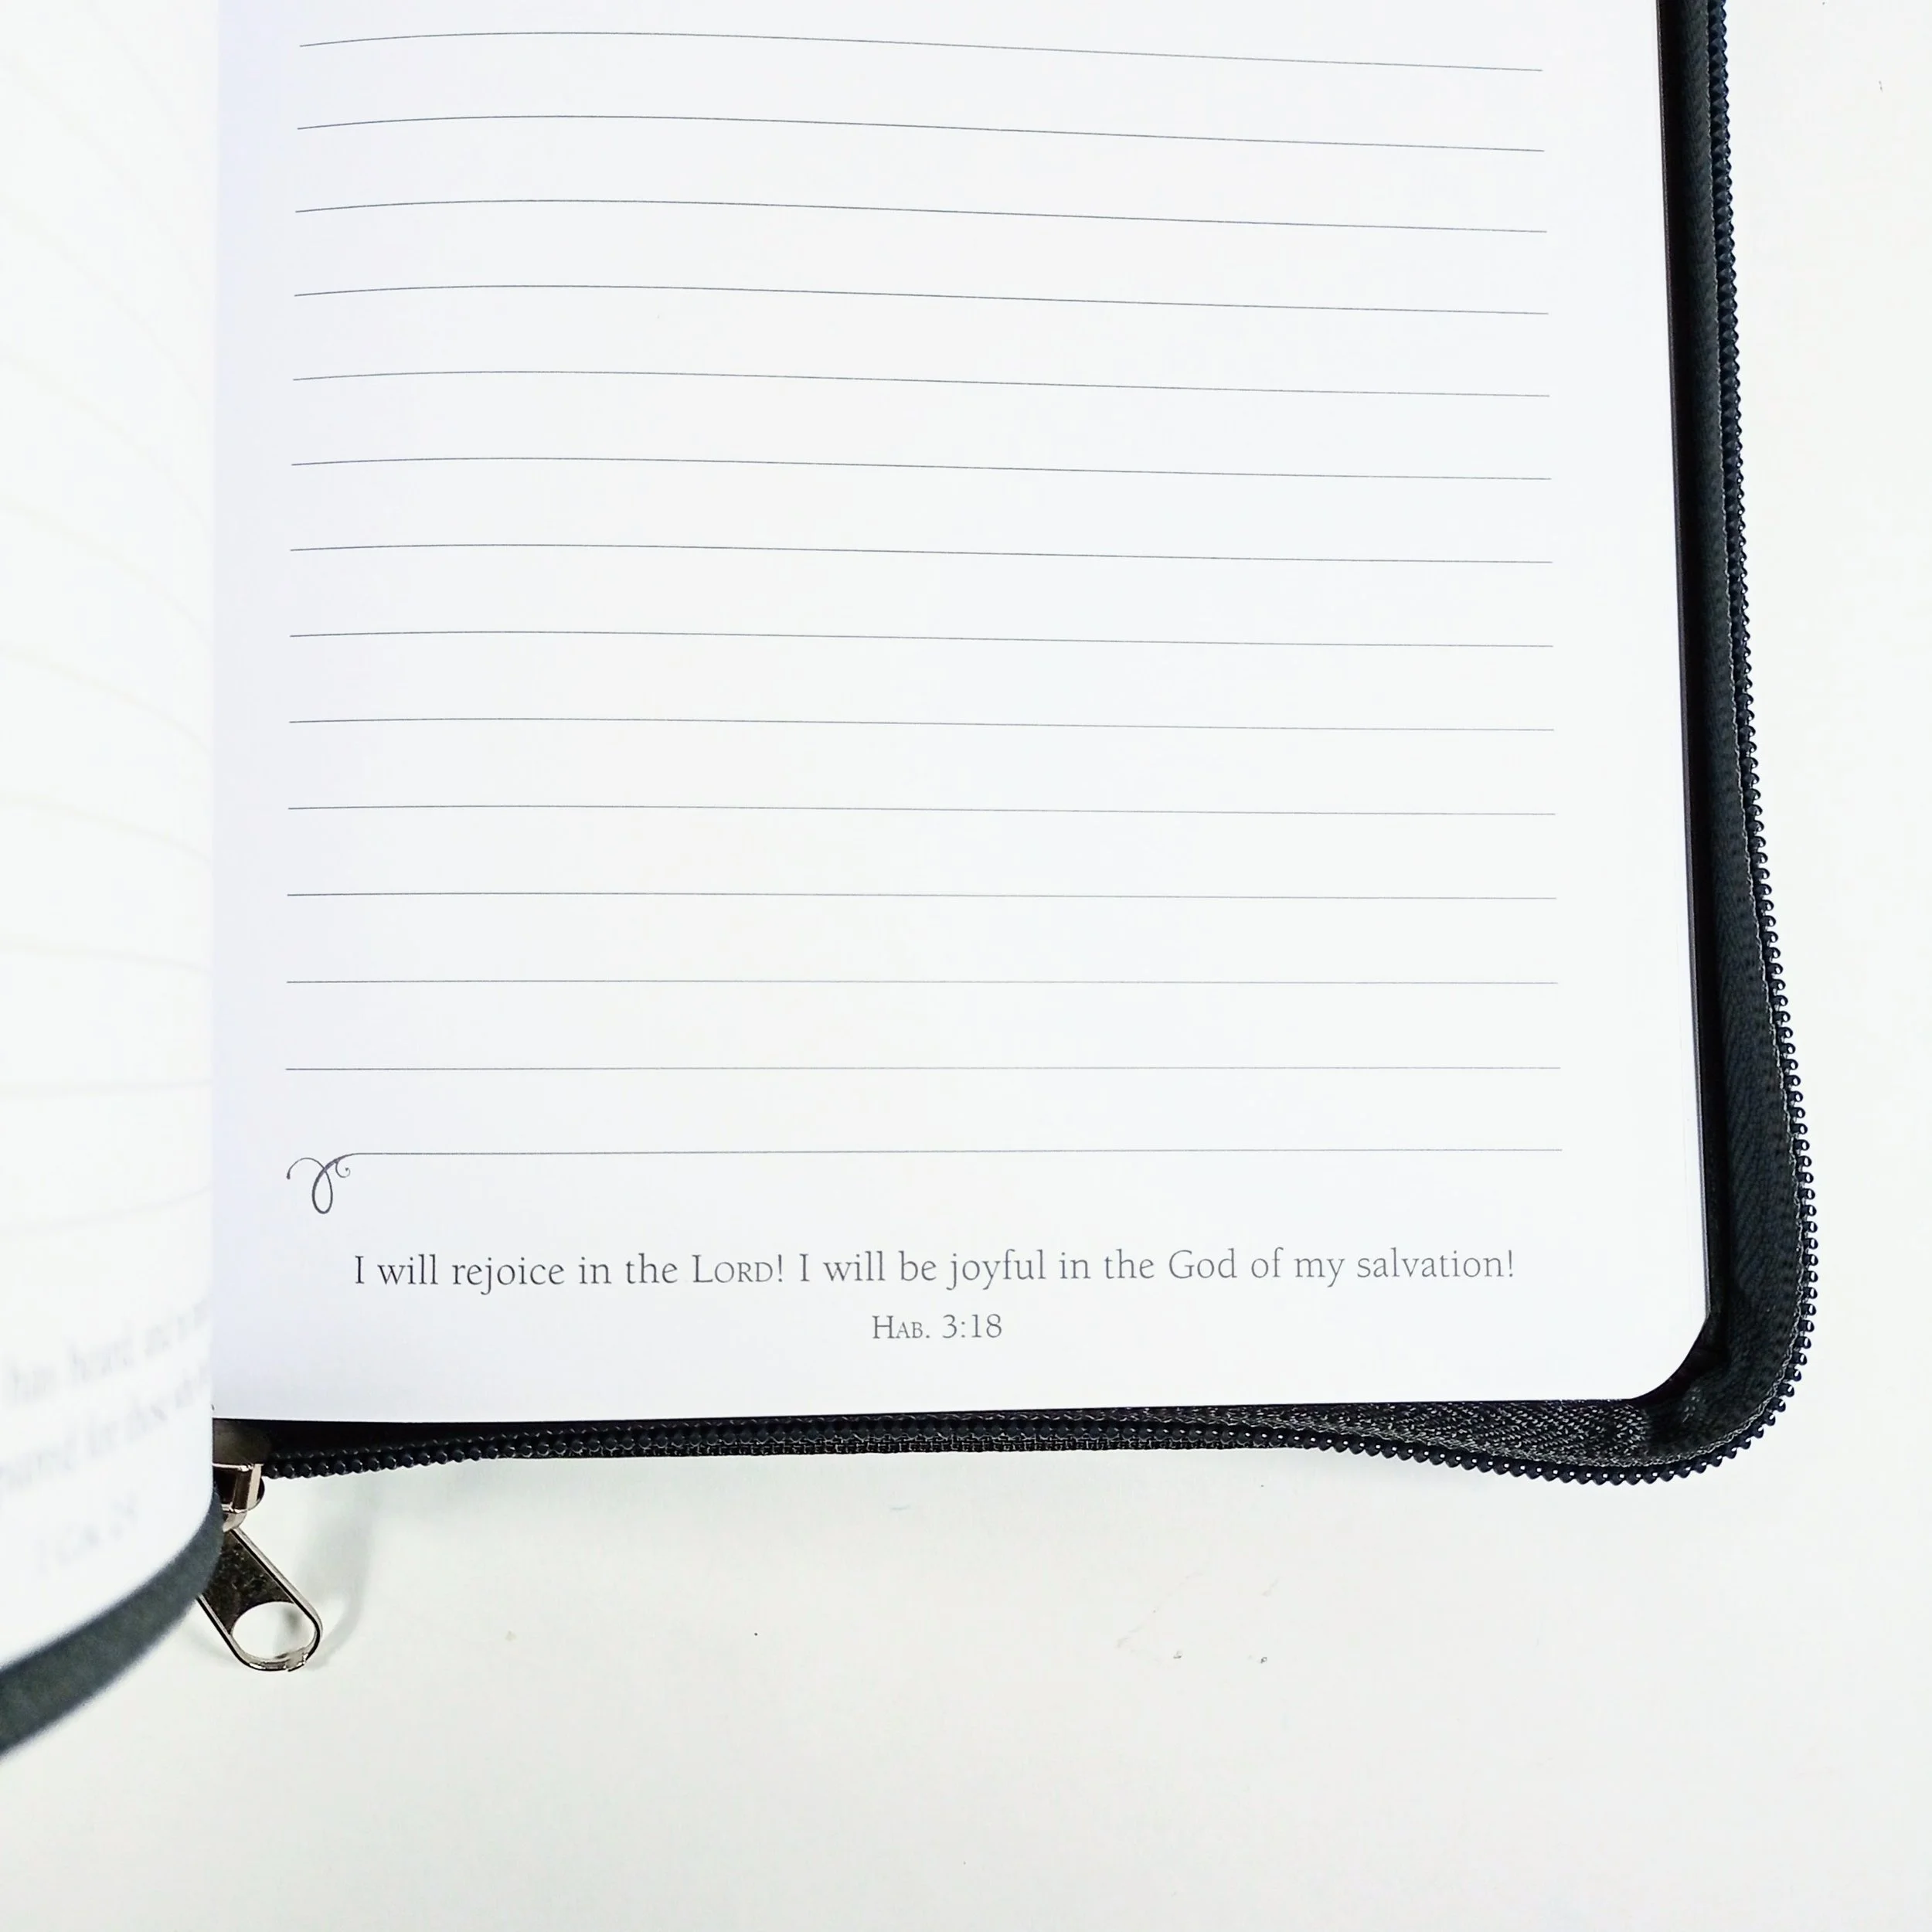 I will rejoice in the LORD! I will be joyful in the God of my salvation!
HAB. 3:18